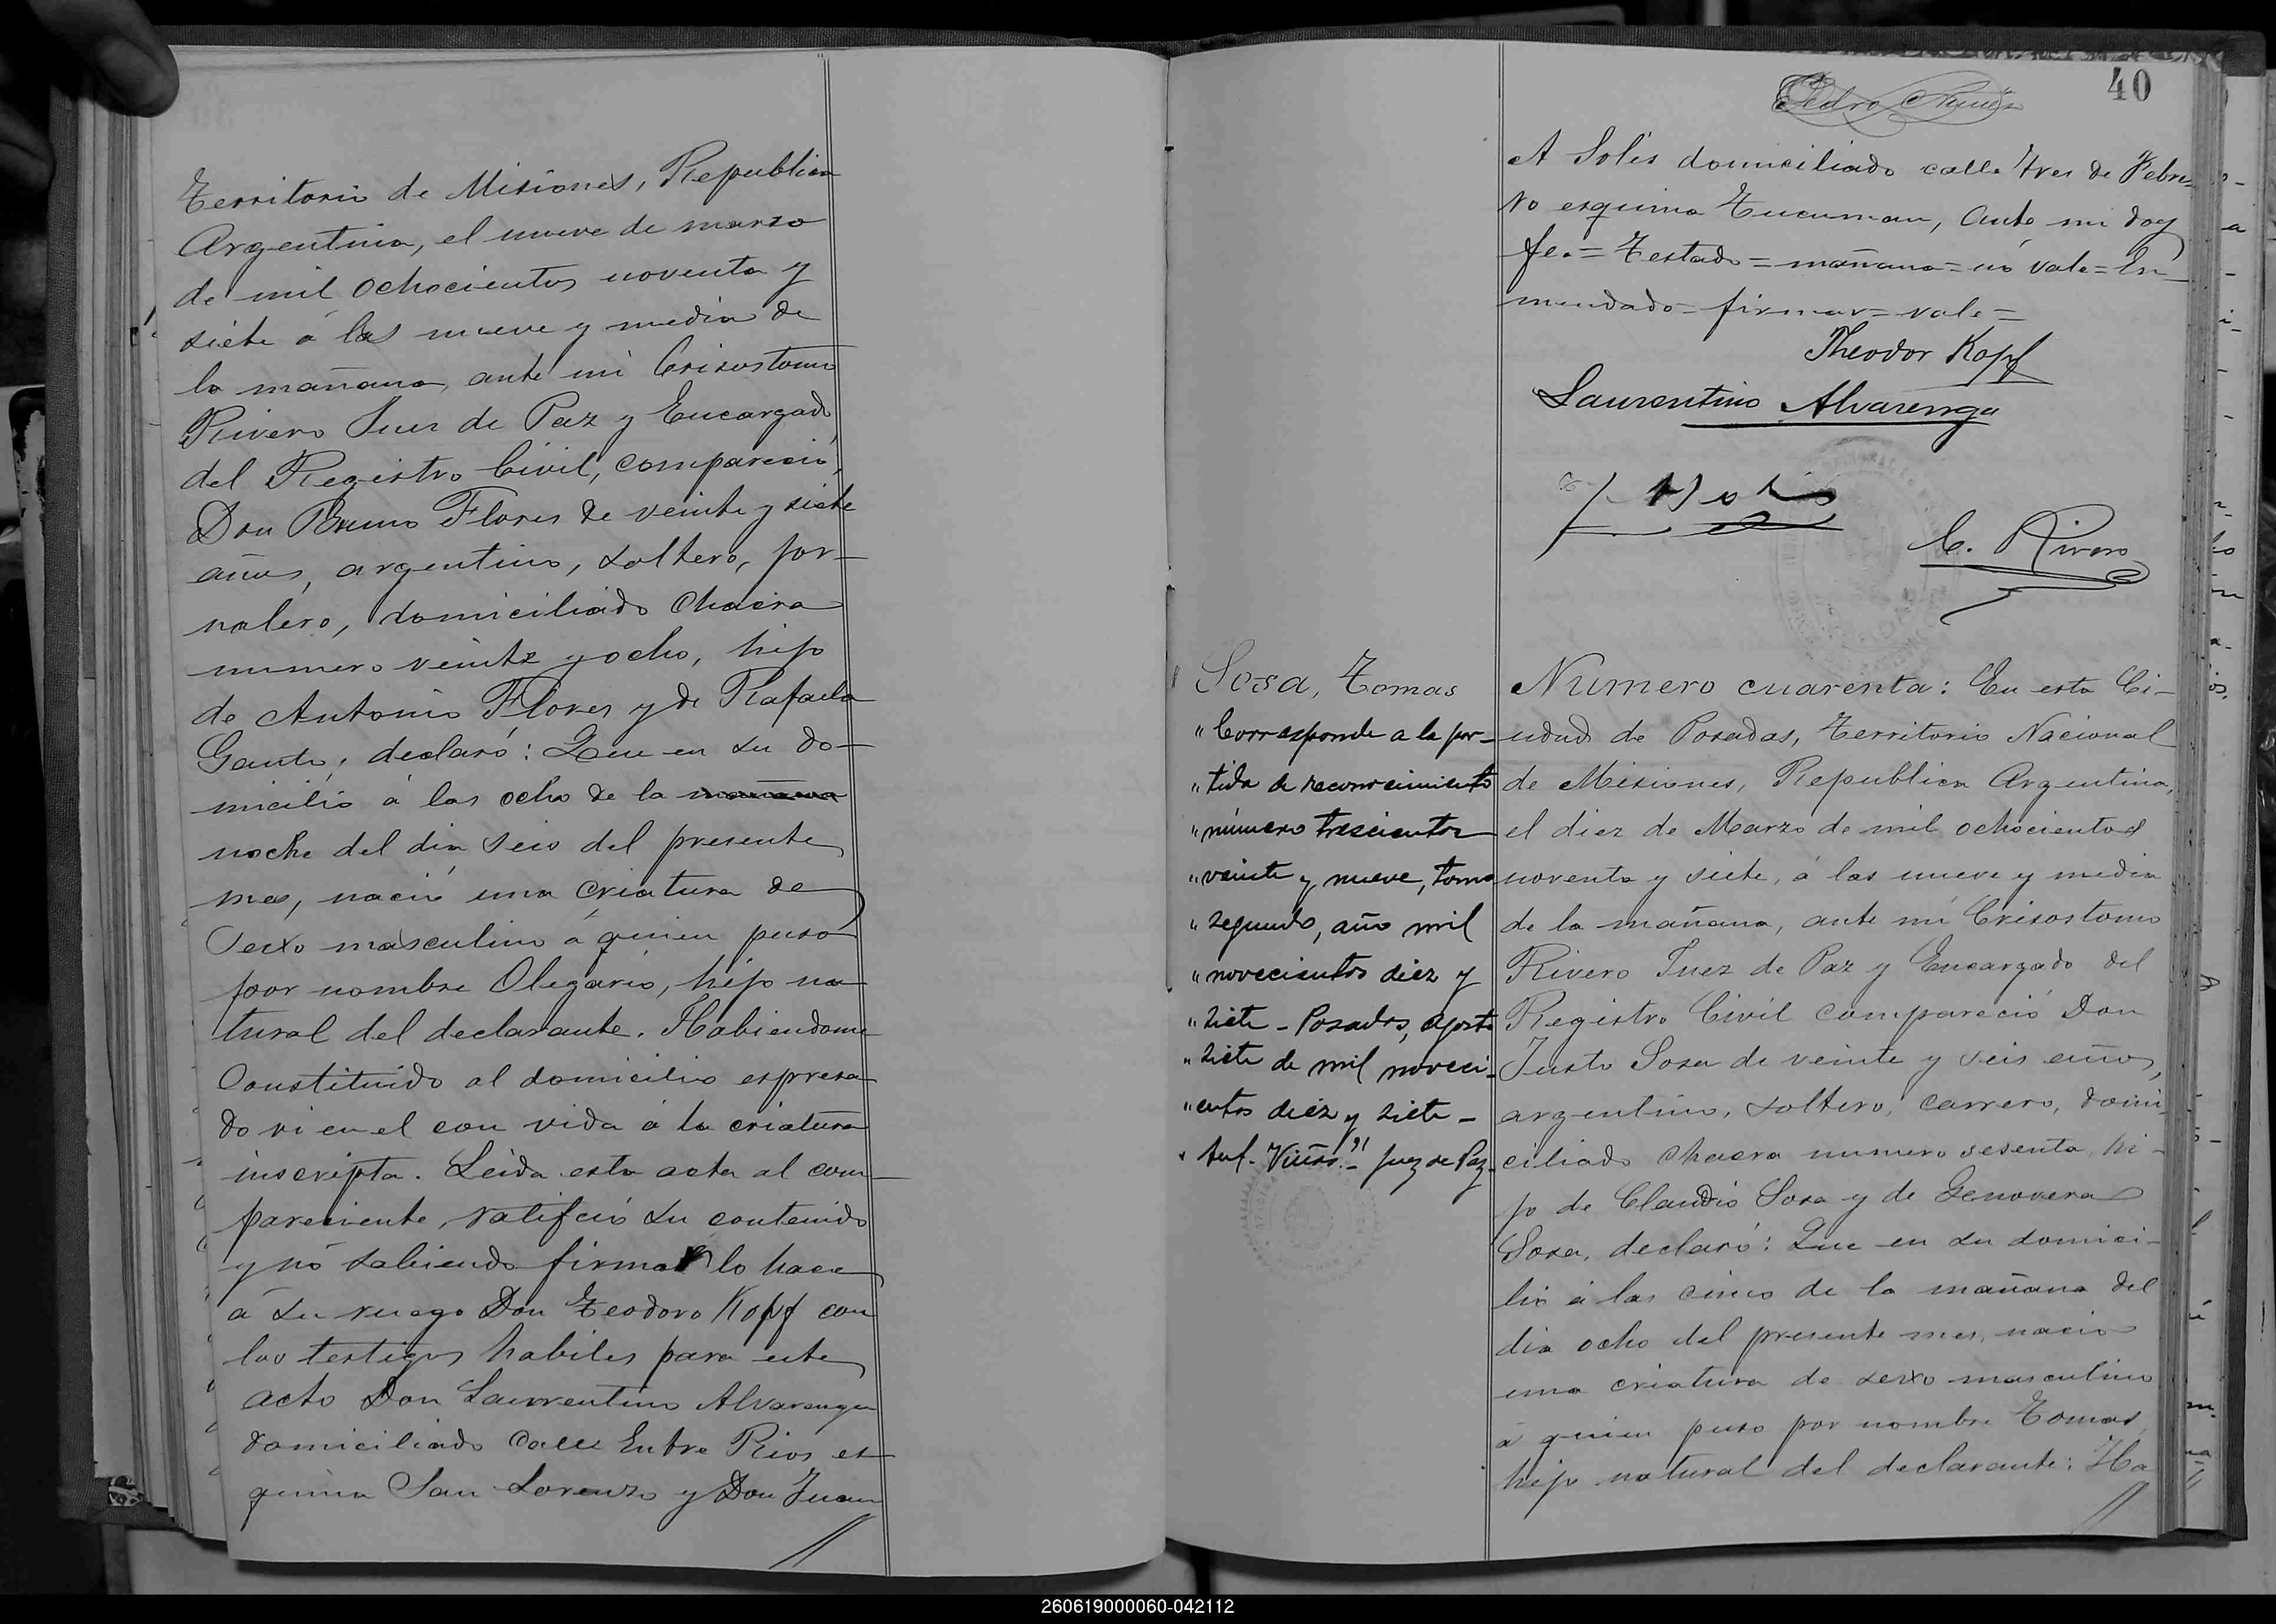 Territorio de Misiones, Republica
Argentina, el nueve de marzo
de mil ochocientos noventa y
siete á las nueve y media de
la mañana, ante mi Crisostomo
Rivero Juez de Paz y Encargado
del Registro Civil, compareció,
Don Bruno Flores de veinte y siete
años, argentino, soltero, jor-
nalero, domiciliado Chacra
numero veinte y ocho, hijo
de Antonio Flores y de Rafaela
Gante, declaró: Que en su do-
micilio á las ocho de la mañana
noche del dia seis del presente
mes, nació una criatura de
sexo masculino á quien puso
por nombre Olegario, hijo na
tural del declarante. Habiendome
Constituido al domicilio espresa
do vi en el con vida á la criatura
inscripta. Leida esta acta al com-
pareciente, ratificó su contenido
y nó sabiendo firmar lo hace
á su ruego Don Teodoro Kopf con
los testigos habiles para este
acto Don Laurentino Alvarenga
domiciliado Calle Entre Rios es
quina San Lorenzo y Don Juan
40
Pedro
A Solis domiciliado calle tres de Febre-
ro esquina Tucuman, Ante mi doy
fe.= Testado = mañana = nó vale = En-
mendado = firmar = vale =
Theodor Kopf
Laurentino Alvarenga
C. Rivero
Sosa, Tomas
"Corresponde a la par-
"tida de reconocimiento
"número trescientos
"veinte y nueve, tomo
"segundo, año mil
"novecientos diez y
"siete - Posadas, agosto
"siete de mil noveci-
"entos diez y siete -
Juez de Paz-
Numero cuarenta: En esta Ci-
udad de Posadas, Territorio Nacional
de Misiones, Republica Argentina,
el diez de Marzo de mil ochocientos
noventa y siete, á las nueve y media
de la mañana, ante mí Crisostomo
Rivero Juez de Paz y Encargado del
Registro Civil compareció Don
Justo Sosa de veinte y seis años,
argentino, soltero, carrero, domi
ciliado chacra numero sesenta, hi-
jo de Claudio Sosa y de Genoveva
Sosa, declaró: Que en su domici-
lio á las cinco de la mañana del
dia ocho del presente mes, nació
una criatura de sexo masculino
á quien puso por nombre Tomas,
hijo natural del declarante: Ha
260619000060-042112